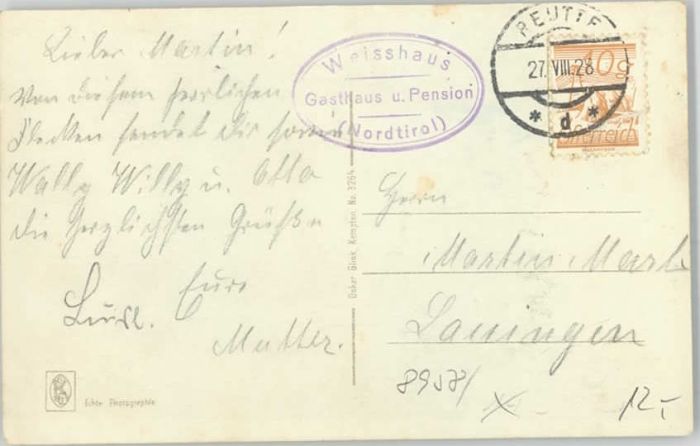 Lieber Martin!
Von diesem herrlichen
Flecken sendet dir sowie
Wally Willy u. Otto
die herzlichsten Grüße
Eure
Mutter.
Weisshaus
Gasthaus u. Pension
(Nordtirol)
REUTTE
27. VIII. 28
* d *
10 g
Österreich
Herrn
Martin
Lauingen
8958/
12,-
Oskar Blenk, Kempten, No. 3264
Echte Photographie